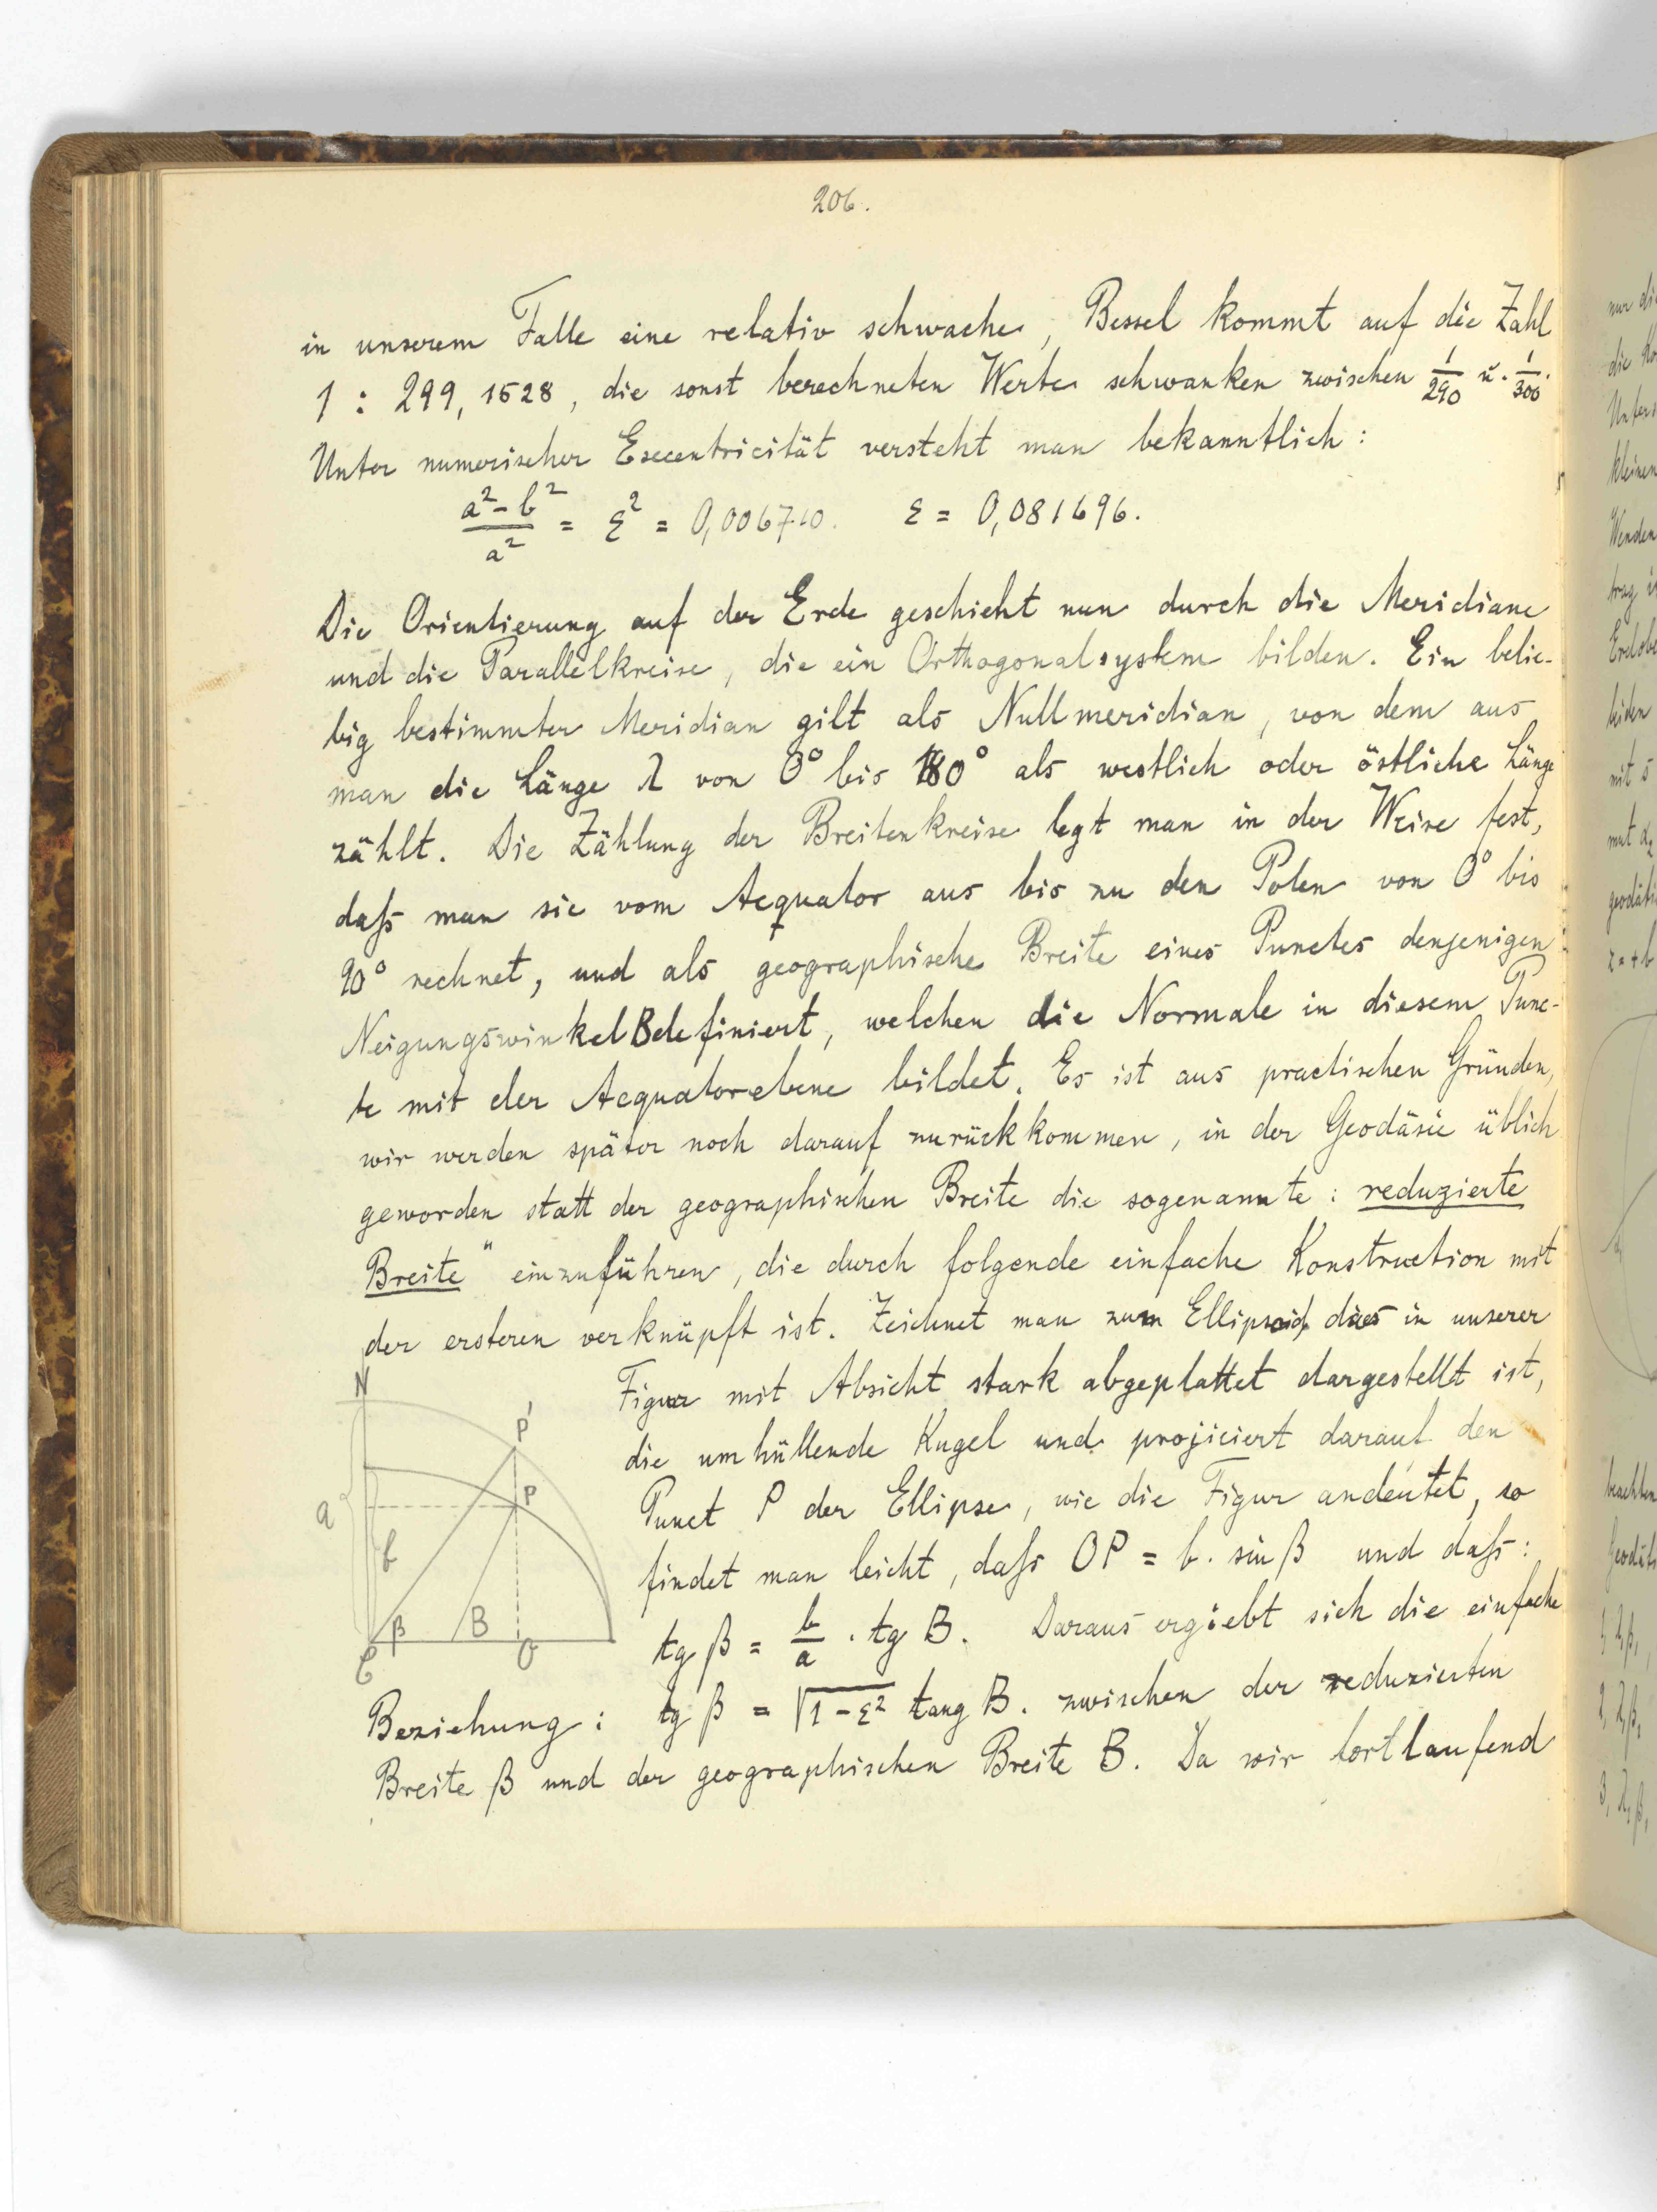 206.
in unserem Falle eine relativ schwache, Bessel kommt auf die Zahl
1 : 299,1528, die sonst berechneten Werte schwanken zwischen 1/290 u. 1/300.
Unter numerischer Excentricität versteht man bekanntlich:
(a² - b²)/a² = ε² = 0,006710. ε = 0,081696.
Die Orientierung auf der Erde geschieht nun durch die Meridiane
und die Parallelkreise, die ein Orthogonalsystem bilden. Ein belie-
big bestimmter Meridian gilt als Nullmeridian, von dem aus
man die Länge λ von 0° bis 180° als westlich oder östliche Länge
zählt. Die Zählung der Breitenkreise legt man in der Weise fest,
daß man sie vom Aequator aus bis zu den Polen von 0° bis
90° rechnet, und als geographische Breite eines Punctes denjenigen
Neigungswinkel B definiert, welchen die Normale in diesem Punc-
te mit der Aequatorebene bildet. Es ist aus practischen Gründen,
wir werden später noch darauf zurückkommen, in der Geodäsie üblich
geworden statt der geographischen Breite die sogenannte: reduzierte
Breite" einzuführen, die durch folgende einfache Konstruction mit
der ersteren verknüpft ist. Zeichnet man zum Ellipsoid, das in unserer
Figur mit Absicht stark abgeplattet dargestellt ist,
die umhüllende Kugel und projiciert darauf den
Punct P der Ellipse, wie die Figur andeutet, so
findet man leicht, daß OP = b. sin β und daß:
tg β = b/a . tg B. Daraus ergiebt sich die einfache
Beziehung: tg β = √(1-ε²) tang B. zwischen der reduzierten
Breite β und der geographischen Breite B. Da wir fortlaufend
N
P'
P
a
b
β
B
C
O